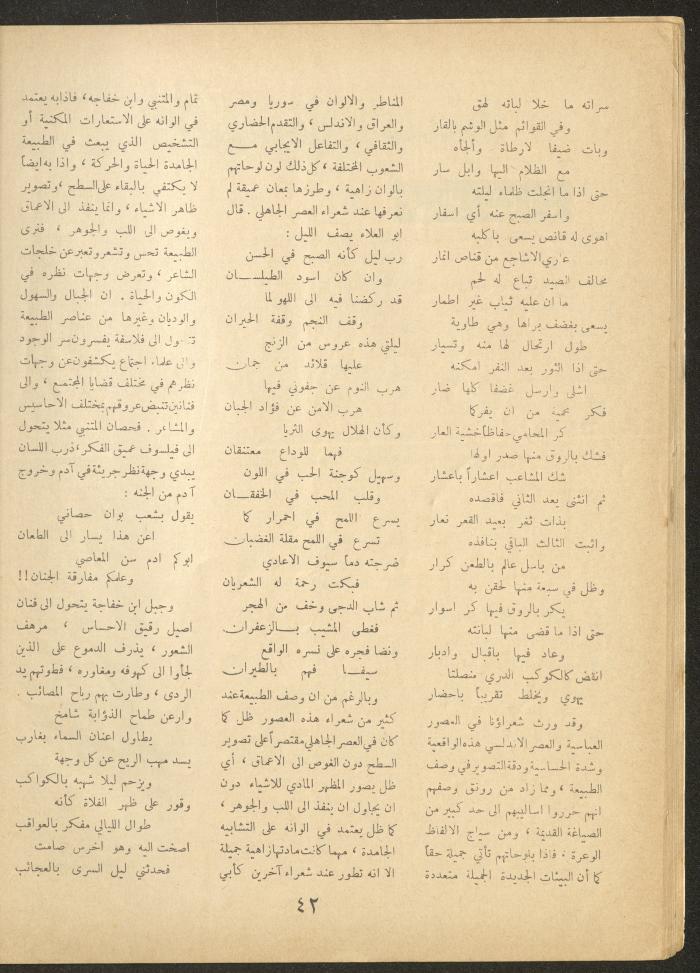 سراته ما خلا لباته لهق
وفي القوائم مثل الوشم بالقار
وبات ضيفا لارطاة وألجأه
مع الظلام اليها وابل سار
حتى اذا ما انجلت ظلماء ليلته
واسفر الصبح عنه أي اسفار
اهوى له قانص يسعى باكلبه
عاري الاشاجع من قناص انمار
محالف الصيد تباع له لحم
ما ان عليه ثياب غير اطمار
يسعى بغضف براها وهي طاوية
طول ارتحال لها منه وتسيار
حتى اذا الثور بعد النفر امكنه
اشلى وارسل غضفا كلها ضار
فكر محمية من ان يفر كما
كر المحامي حفاظا خشية العار
فشك بالروق منها صدر اولها
شك المشاعب اعشاراً باعشار
ثم انثنى بعد الثاني فاقصده
بذات ثغر بعيد القعر نعار
واثبت الثالث الباقي بنافذه
من باسل عالم بالطعن كرار
وظل في سبعة منها لحقن به
يكر بالروق فيها كر اسوار
حتى اذا ما قضى منها لبانته
وعاد فيها باقبال وادبار
انقض كالكوكب الدري منصلتا
يهوي ويخلط تقريباً باحضار
وقد ورث شعراؤنا في العصور
العباسية والعصر الاندلسي هذه الواقعية
وشدة الحساسية ودقة التصوير في وصف
الطبيعة ، ومما زاد من رونق وصفهم
انهم حرروا اساليبهم الى حد كبير من
الصياغة القديمة ، ومن سياج الالفاظ
الوعرة ، فاذا بلوحاتهم تأتي جميلة حقاً
كما أن البيئات الجديدة الجميلة متعددة
المناظر والالوان في سوريا ومصر
والعراق والاندلس ، والتقدم الحضاري
والثقافي ، والتفاعل الايجابي مع
الشعوب المختلفة ، كل ذلك لون لوحاتهم
بالوان زاهية ، وطرزها بمعان عميقة لم
نعرفها عند شعراء العصر الجاهلي . قال
ابو العلاء يصف الليل :
رب ليل كأنه الصبح في الحسن
وان كان اسود الطيلسان
قد ركضنا فيه الى اللهو لما
وقف النجم وقفة الحيران
ليلتي هذه عروس من الزنج
عليها قلائد من جمان
هرب النوم عن جفوني فيها
هرب الامن عن فؤاد الجبان
وكأن الهلال يهوى الثريا
فهما للوداع معتنقان
وسهيل كوجنة الحب في اللون
وقلب المحب في الخفقان
يسرع اللمح في احمرار كما
تسرع في اللمح مقلة الغضبان
ضرجته دماً سيوف الاعادي
فبكت رحمة له الشعريان
ثم شاب الدجى وخف من الهجر
فغطى المشيب بالزعفران
ونضا فجره على نسره الواقع
سيفا فهم بالطيران
وبالرغم من ان وصف الطبيعة عند
كثير من شعراء هذه العصور ظل كما
كان في العصر الجاهلي مقتصراً على تصوير
السطح دون الغوص الى الاعماق ، أي
ظل يصور المظهر المادي للاشياء دون
ان يحاول ان ينفذ الى اللب والجوهر ،
كما ظل يعتمد في الوانه على التشابيه
الجامدة ، مهما كانت مادتها زاهية جميلة
الا انه تطور عند شعراء آخرين كأبي
تمام والمتنبي وابن خفاجه ، فاذا به يعتمد
في الوانه على الاستعارات المكنية أو
التشخيص الذي يبعث في الطبيعة
الجامدة الحياة والحركة ، واذا به ايضاً
لا يكتفي بالبقاء على السطح ، وتصوير
ظاهر الاشياء ، وانما ينفذ الى الاعماق
ويغوص الى اللب والجوهر ، فنرى
الطبيعة تحس وتشعر وتعبر عن خلجات
الشاعر ، وتعرض وجهات نظره في
الكون والحياة . ان الجبال والسهول
والوديان وغيرها من عناصر الطبيعة
تتحول الى فلاسفة يفسرون سر الوجود
والى علماء اجتماع يكشفون عن وجهات
نظرهم في مختلف قضايا المجتمع ، والى
فنانين تنبض عروقهم بمختلف الاحاسيس
والمشاعر . فحصان المتنبي مثلا يتحول
الى فيلسوف عميق الفكر ، ذرب اللسان
يبدي وجهة نظر جريئة في آدم وخروج
آدم من الجنه :
يقول بشعب بوان حصاني
اعن هذا يسار الى الطعان
ابوكم ادم سن المعاصي
وعلمكم مفارقة الجنان!!
وجبل ابن خفاجة يتحول الى فنان
اصيل رقيق الاحساس ، مرهف
الشعور ، يذرف الدموع على الذين
لجأوا الى كهوفه ومغاوره ، فطوتهم يد
الردى ، وطارت بهم رياح المصائب .
وارعن طماح الذؤابة شامخ
يطاول اعنان السماء بغارب
يسد مهب الريح عن كل وجهة
ويزحم ليلا شهبه بالكواكب
وقور على ظهر الفلاة كأنه
طوال الليالي مفكر بالعواقب
اصخت اليه وهو اخرس صامت
فحدثني ليل السرى بالعجائب
٤٢